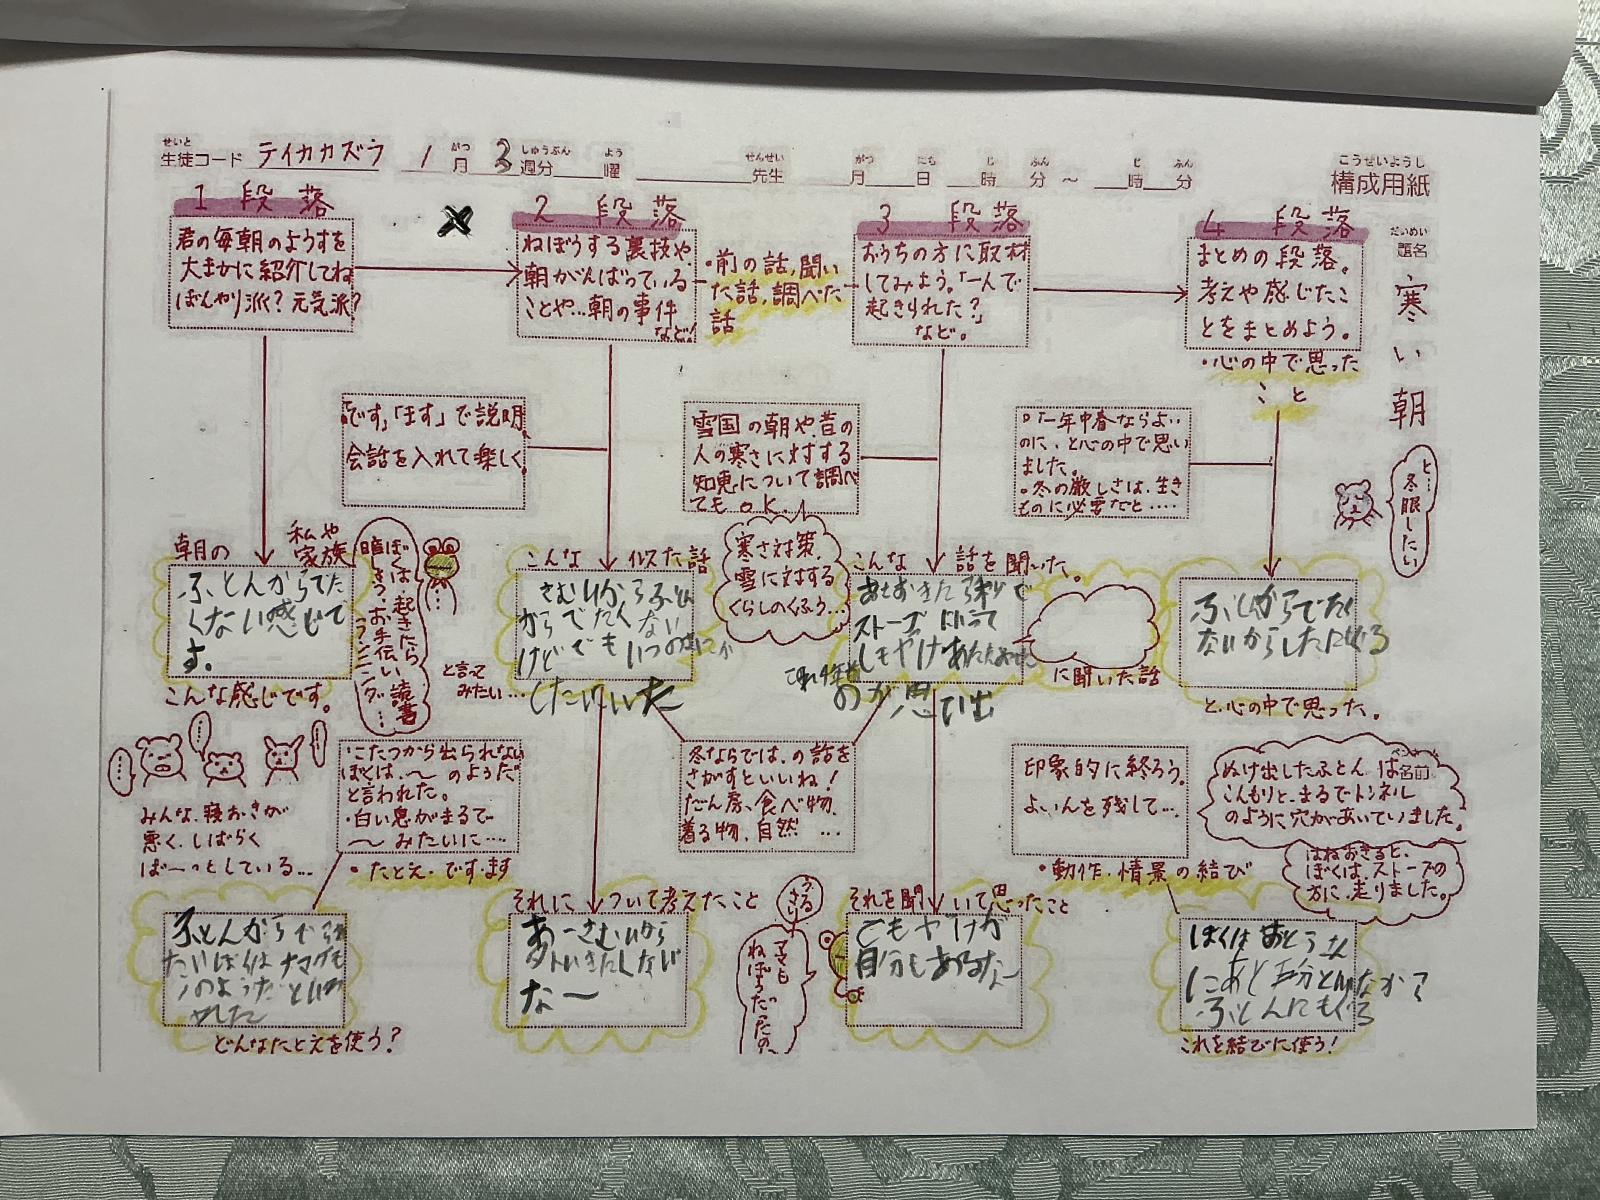 せいと
生徒コード テイカカズラ 1月 3週分 曜 先生 月 日 時 分 ～ 時 分
がつ しゅうぶん よう せんせい がつ にち じ ふん じ ふん
こうせいようし
構成用紙
だいめい
題名
寒い朝
1段落
君の毎朝のようすを
大まかに紹介してね
ぼんやり派？元気派？
2段落
ねぼうする裏技や、
朝がんばっている
ことや…朝の事件
など！
・前の話，聞い
た話，調べた
話
3段落
おうちの方に取材
してみよう。「一人で
起きられた？」
など。
4段落
まとめの段落。
考えや感じたこ
とをまとめよう。
・心の中で思った
こと
「です」「ます」で説明
会話を入れて楽しく。
雪国の朝や、昔の
人の寒さに対する
知恵について調べ
てもOK。
○「一年中春ならよい
のに、と心の中で思い
ました。
・冬の厳しさは、生き
ものに必要だと……
と…冬眠したい
朝の
私や
家族
ふとんからでた
くない感じで
す。
こんな感じです。
ぼくは、起きたら
暗しょう・お手伝い・読書
・ランニング…
…
こんな 似た話
さむいからふとん
からでたくない
けどでもいつのまにか
と言って
みたい…
寒さ対策、
雪に対する
くらしのくふう…
こんな 話を聞いた。
ストーブ
しもやけ
のが思い出
に聞いた話
ないから
と、心の中で思った。
みんな、寝おきが
悪く、しばらく
ばーっとしている…
・こたつから出られない
ぼくは、～のようだ
と言われた。
・白い息がまるで
～みたいに……
・たとえ・です，ます
冬ならでは、の話を
さがすといいね！
だん房、食べ物、
着る物、自然…
印象的に終ろう。
よいんを残して…
・動作，情景の結び
ペンネーム
名前
ぬけ出したふとんは
こんもりと、まるでトンネル
のように穴があいていました。
はねおきると、
ぼくは、ストーブの
方に、走りました。
ふとんから
ぼくはナマケモ
ノのようだといわ
れました
どんなたとえを使う？
それについて考えたこと
あーさむいから
な～
うるさい
ママも
ねぼうだったの～
それを聞いて思ったこと
しもやけが
自分もあるな～
ぼくはおとうさん
ふとんにもぐる
これを結びに使う！